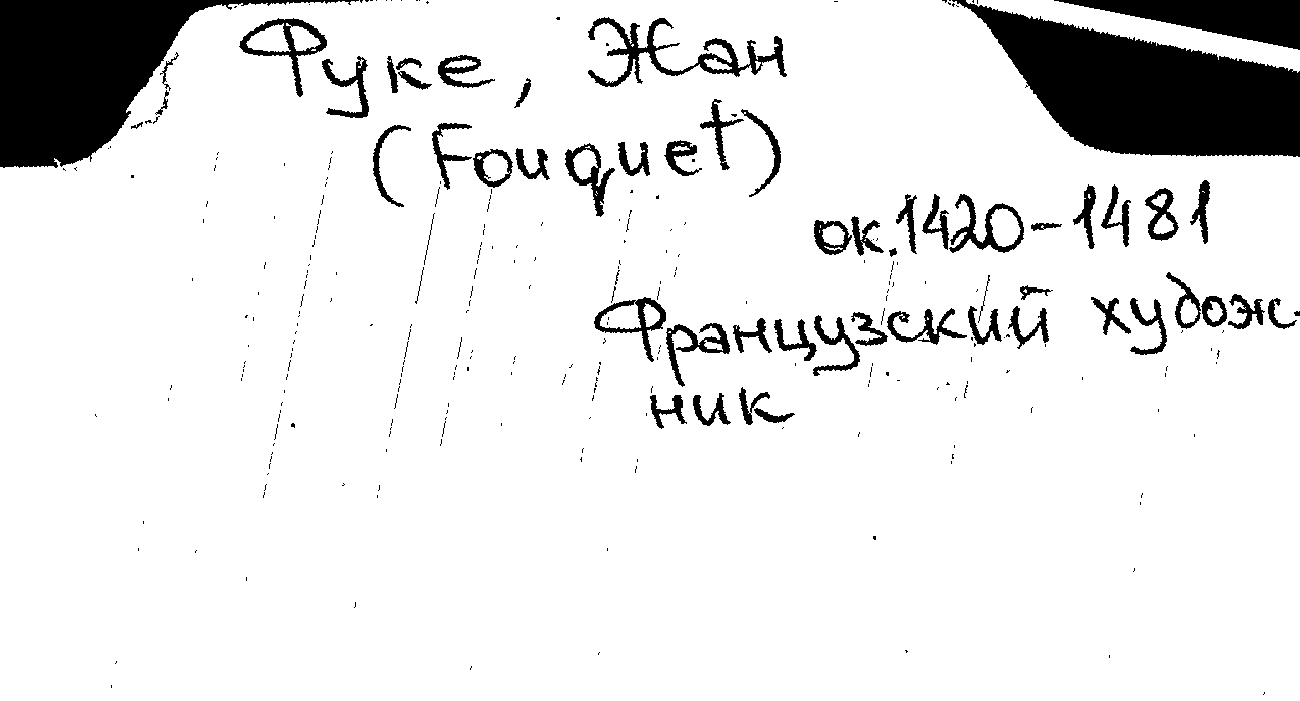 Фуке, Жан
(Fouquet)
ок. 1420-1481
Французский худож-
ник